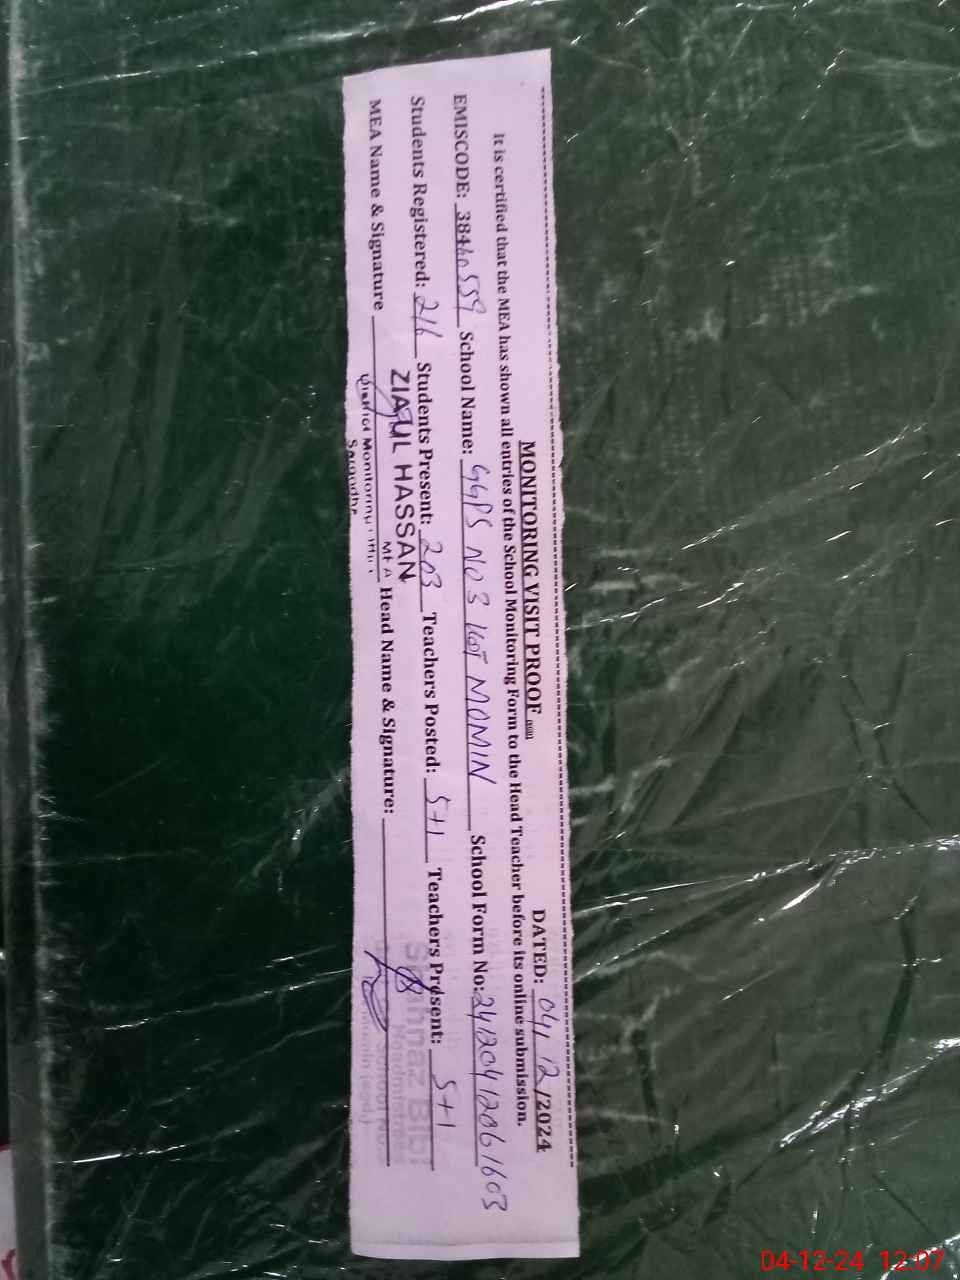 MONITORING VISIT PROOF DATED: 04/12/2024
It is certified that the MEA has shown all entries of the School Monitoring Form to the Head Teacher before its online submission.
EMISCODE: 38440559 School Name: GGPS NO 3 KOT MOMIN School Form No: 24120412061603
Students Registered: 216 Students Present: 203 Teachers Posted: 5+1 Teachers Present: 5+1
MEA Name & Signature Head Name & Signature:
ZIA UL HASSAN
MEA
District Monitoring Office
Sargodha
Shahnaz Bibi
Headmistress
04-12-24 12:07